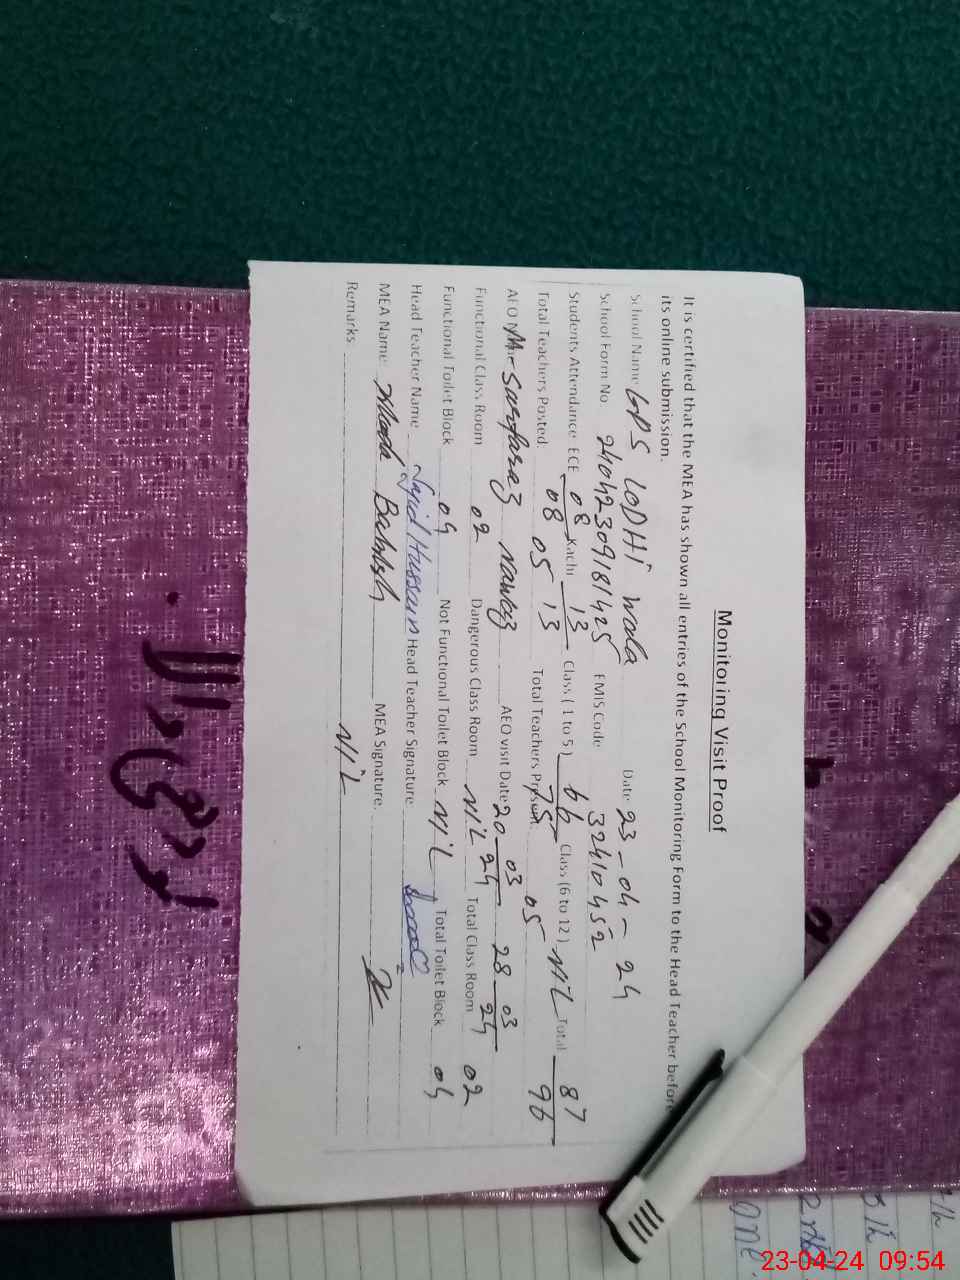 Monitoring Visit Proof
It is certified that the MEA has shown all entries of the School Monitoring Form to the Head Teacher before
its online submission.
School Name GPS LODHI wala Date 23-04-24
School Form No. 24042309181425 EMIS Code 32410452
Students Attendance ECE 08/08 Kachi 13/13 Class (1 to 5) 66/75 Class (6 to 12) NIL Total 87/96
Total Teachers Posted: 05 Total Teachers Present: 05
AEO Mr. Sarfaraz Nawaz AEO visit Date 20/03/24 28/03/24
Functional Class Room 02 Dangerous Class Room NIL Total Class Room 02
Functional Toilet Block 04 Not Functional Toilet Block NIL Total Toilet Block 04
Head Teacher Name Sajid Hussain Head Teacher Signature
MEA Name: Bakhsh MEA Signature:
Remarks NIL
23-04-24 09:54